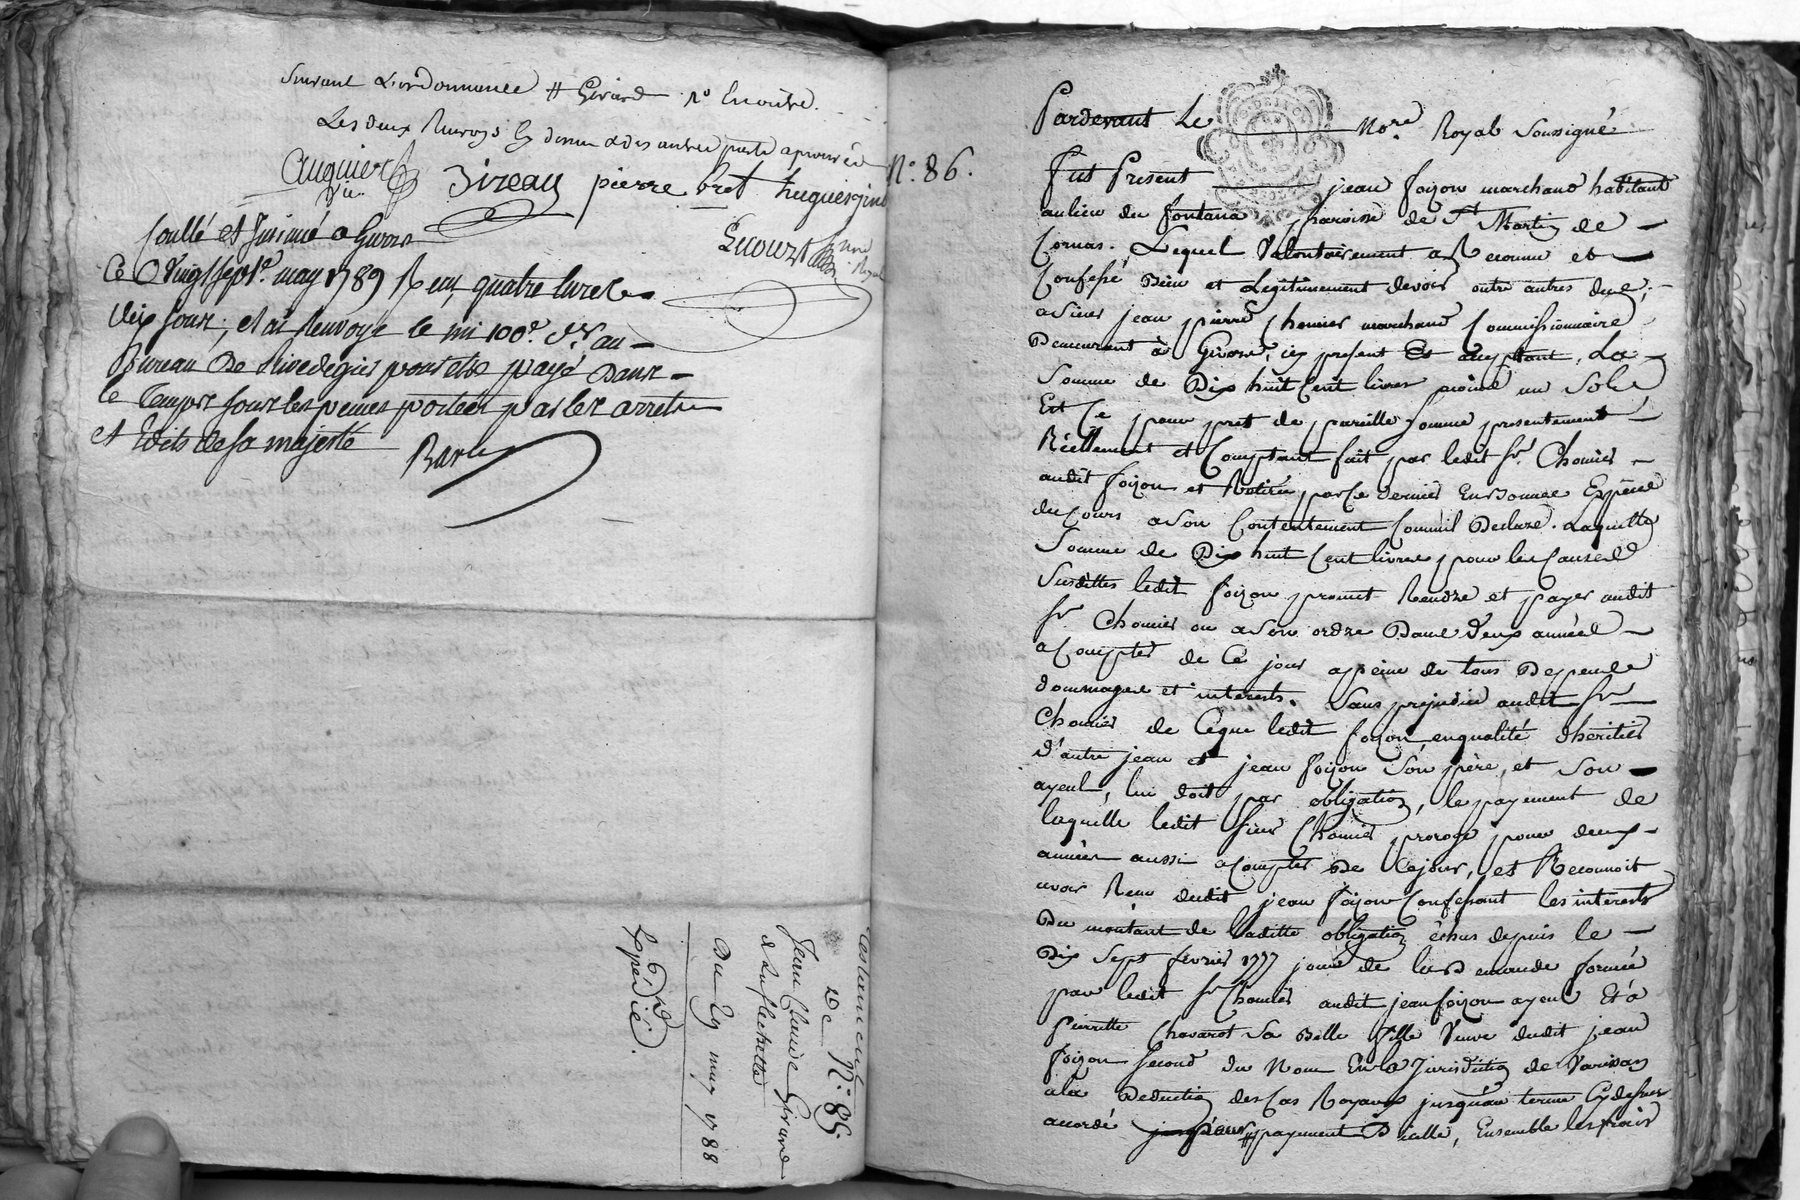 Suivant L'ordonnance # Girard Rd Encontre.
Les deux Renvois Cy dernier & des autres parts approuvés
Auguierd Vu Bizeau pierre bret hugues gini
Lecourt Nore Royal
Collé et Insinué a Givors
Ce Vingt sept e. may 1789 Reçu quatre livres
dix sous, et ai Renvoyé le mi 100e. dr. au
Bureau De Rivedegier pour etre payé Dans
le temps sous les peines portées par les arrets
et Edits de sa majesté
Testament N.° 85.
De
Jean Claude Girard
de la flechette
Du 29 may 1788
Expédié.
N.° 86.
Pardevant Le Nore. Royal Soussigné
Fut Présent jean foizon marchand habitant
au lieu du fontana paroisse de St. Martin de
Cornas. Lequel Volontairement a Reconnu et
Confessé Bien et Legitimement devoir outre autres dus,
a Sieur jean pierre Chomier marchand Commissionnaire
Demeurant à Givors, icy present Et acceptant, La
Somme de Dix huit Cent livres moins un Sol
Et Ce pour pret de pareille Somme presentement
Réellement et Comptant fait par ledit Sr. Chomier
audit foizon et Retirée par Ce dernier En Bonnes Espèces
du Cours a Son Contentement Comm'il Declare. Laquelle
Somme de Dix huit Cent livres pour les Causes
Susdittes ledit foizon promet Rendre et payer audit
Sr. Chomier ou a Son ordre Dans Deux années
a Compter de Ce jour a peine de tous Depends
dommages et interests. Sans prejudice audit Sr.
Chomier de Ceque ledit foizon, en qualité d'héritier
d'autre jean et jean foizon Son père, et Son
ayeul, lui doit par obligation, le payement de
laquelle ledit Sieur Chomier proroge pour deux
années aussi a Compter De Cejour, et Reconnoit
avoir Reçu dudit jean foizon Confessant les interests
Du montant de laditte obligation échus depuis le
Dix Sept fevrier 1777 jour de la Demande formée
par ledit Sr. Chomier audit jean foizon ayeul Et à
Pierrette Chavarot Sa Belle fille Veuve dudit jean
foizon Second du Nom En la Jurisdiction de Varissan
a la Deduction des Cas Royaux jusqu'au terme Cy dessus
accordé # payement D'icelle, Ensemble les frais